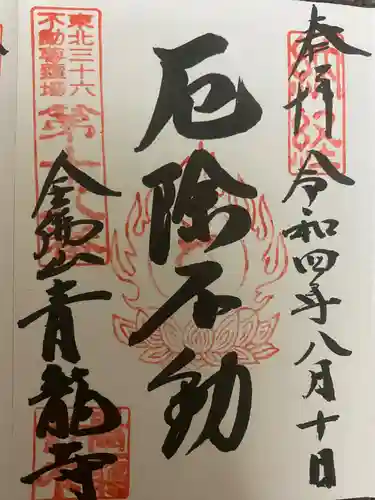 奉拝
令和四年八月十日
厄除不動
東北三十六
不動尊霊場
金剛山青龍寺